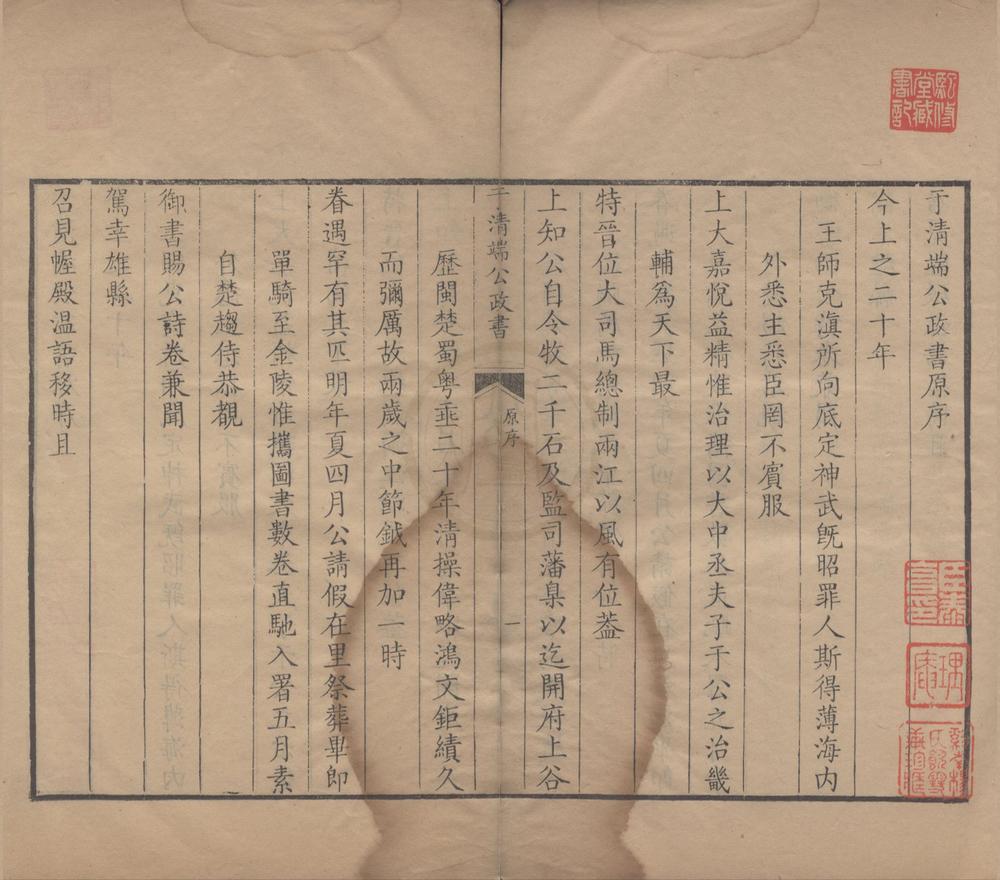 于清端公政書原序
今上之二十年
王師克滇所向底定神武既昭罪人斯得薄海內
外悉主悉臣罔不賓服
上大嘉悅益精惟治理以大中丞夫子于公之治畿
輔爲天下最
特晉位大司馬總制兩江以風有位葢
上知公自令牧二千石及監司藩臬以迄開府上谷
于清端公政書
原序
一
歷閩楚蜀粤垂二十年清操偉略鴻文鉅績久
而彌厲故兩歲之中節鉞再加一時
眷遇罕有其匹明年夏四月公請假在里祭葬畢即
單騎至金陵惟攜圖書數卷直馳入署五月素
自楚趨侍恭觀
御書賜公詩卷兼聞
駕幸雄縣
召見幄殿温語移時且